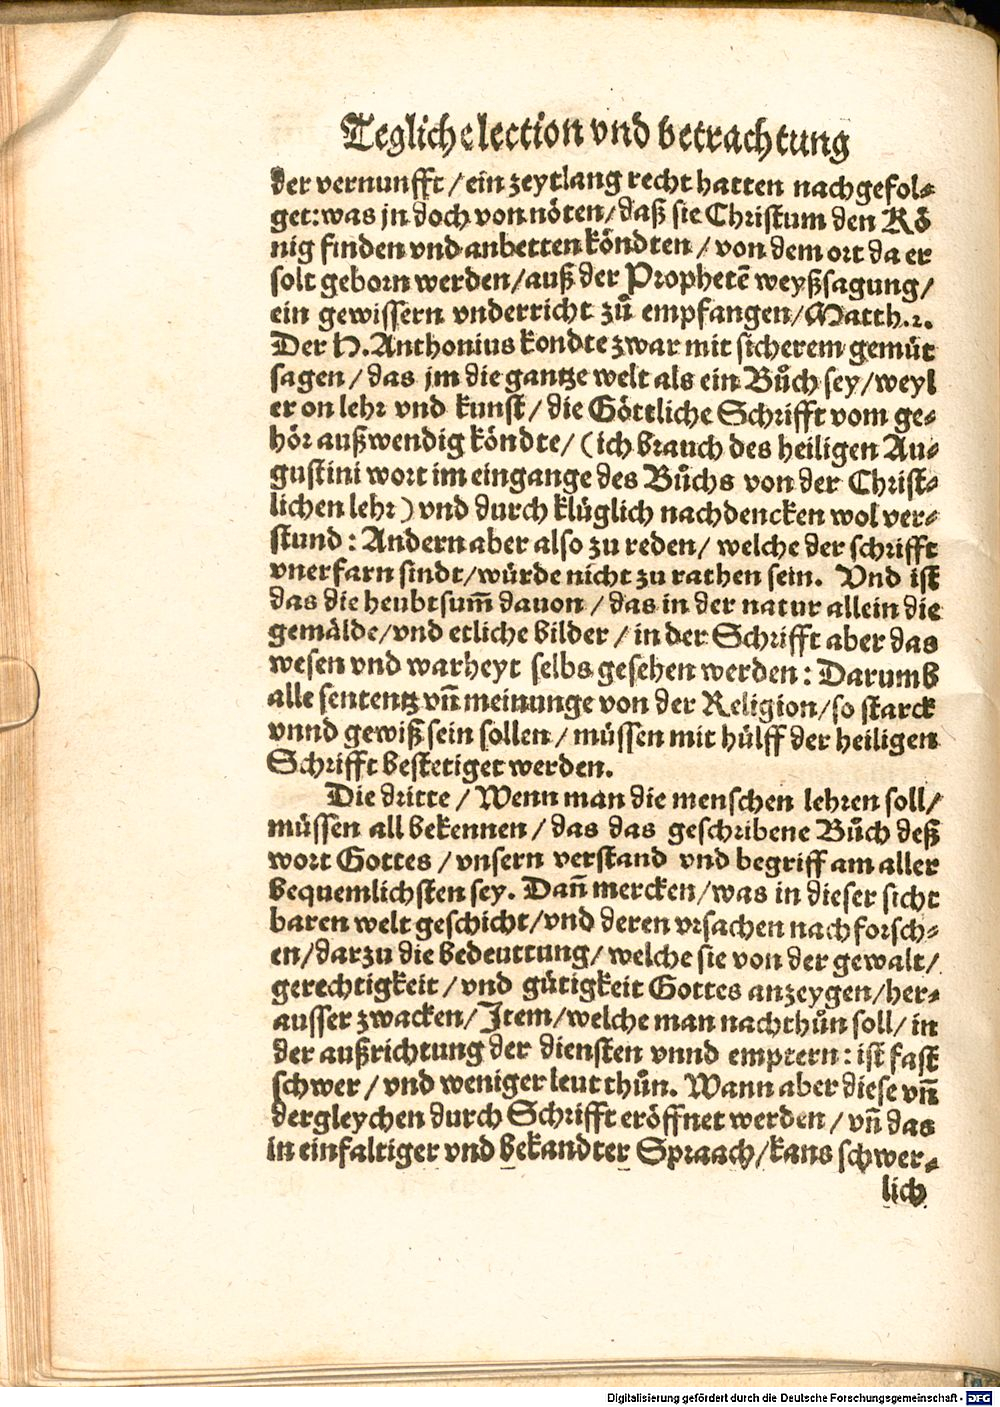 Teglich election vnd betrachtung
der vernunfft / ein zeytlang recht hatten nachgefol⸗
get: was jn doch von nöten / daß sie Christum den Kö
nig finden vnd anbetten köndten / von dem ort da er
solt geborn werden / auß der Prophetē weyßsagung /
ein gewissern vnderricht zů empfangen / Matth. 2.
Der H. Anthonius kondte zwar mit sicherem gemüt
sagen / das jm die gantze welt als ein Bůch sey / weyl
er on lehr vnd kunst / die Göttliche Schrifft vom ge⸗
hör außwendig köndte / (ich brauch des heiligen Au⸗
gustini wort im eingange des Bůchs von der Christ⸗
lichen lehr) vnd durch klüglich nachdencken wol ver⸗
stund: Andern aber also zu reden / welche der schrifft
vnerfarn sindt / würde nicht zu rathen sein. Vnd ist
das die heubtsum̄ dauon / das in der natur allein die
gemälde / vnd etliche bilder / in der Schrifft aber das
wesen vnd warheyt selbs gesehen werden: Darumb
alle sententz vn̄ meinunge von der Religion / so starck
vnnd gewiß sein sollen / müssen mit hülff der heiligen
Schrifft bestetiget werden.
Die dritte / Wenn man die menschen lehren soll /
müssen all bekennen / das das geschribene Bůch deß
wort Gottes / vnsern verstand vnd begriff am aller
bequemlichsten sey. Dan̄ mercken / was in dieser sicht
baren welt geschicht / vnd deren vrsachen nach forsch⸗
en / darzu die bedeuttung / welche sie von der gewalt /
gerechtigkeit / vnd gütigkeit Gottes anzeygen / her⸗
ausser zwacken / Item / welche man nachthůn soll / in
der außrichtung der diensten vnnd emptern: ist fast
schwer / vnd weniger leut thůn. Wann aber diese vn̄
dergleychen durch Schrifft eröffnet werden / vn̄ das
in einfaltiger vnd bekandter Spraach / kans schwer⸗
lich
Digitalisierung gefördert durch die Deutsche Forschungsgemeinschaft - DFG